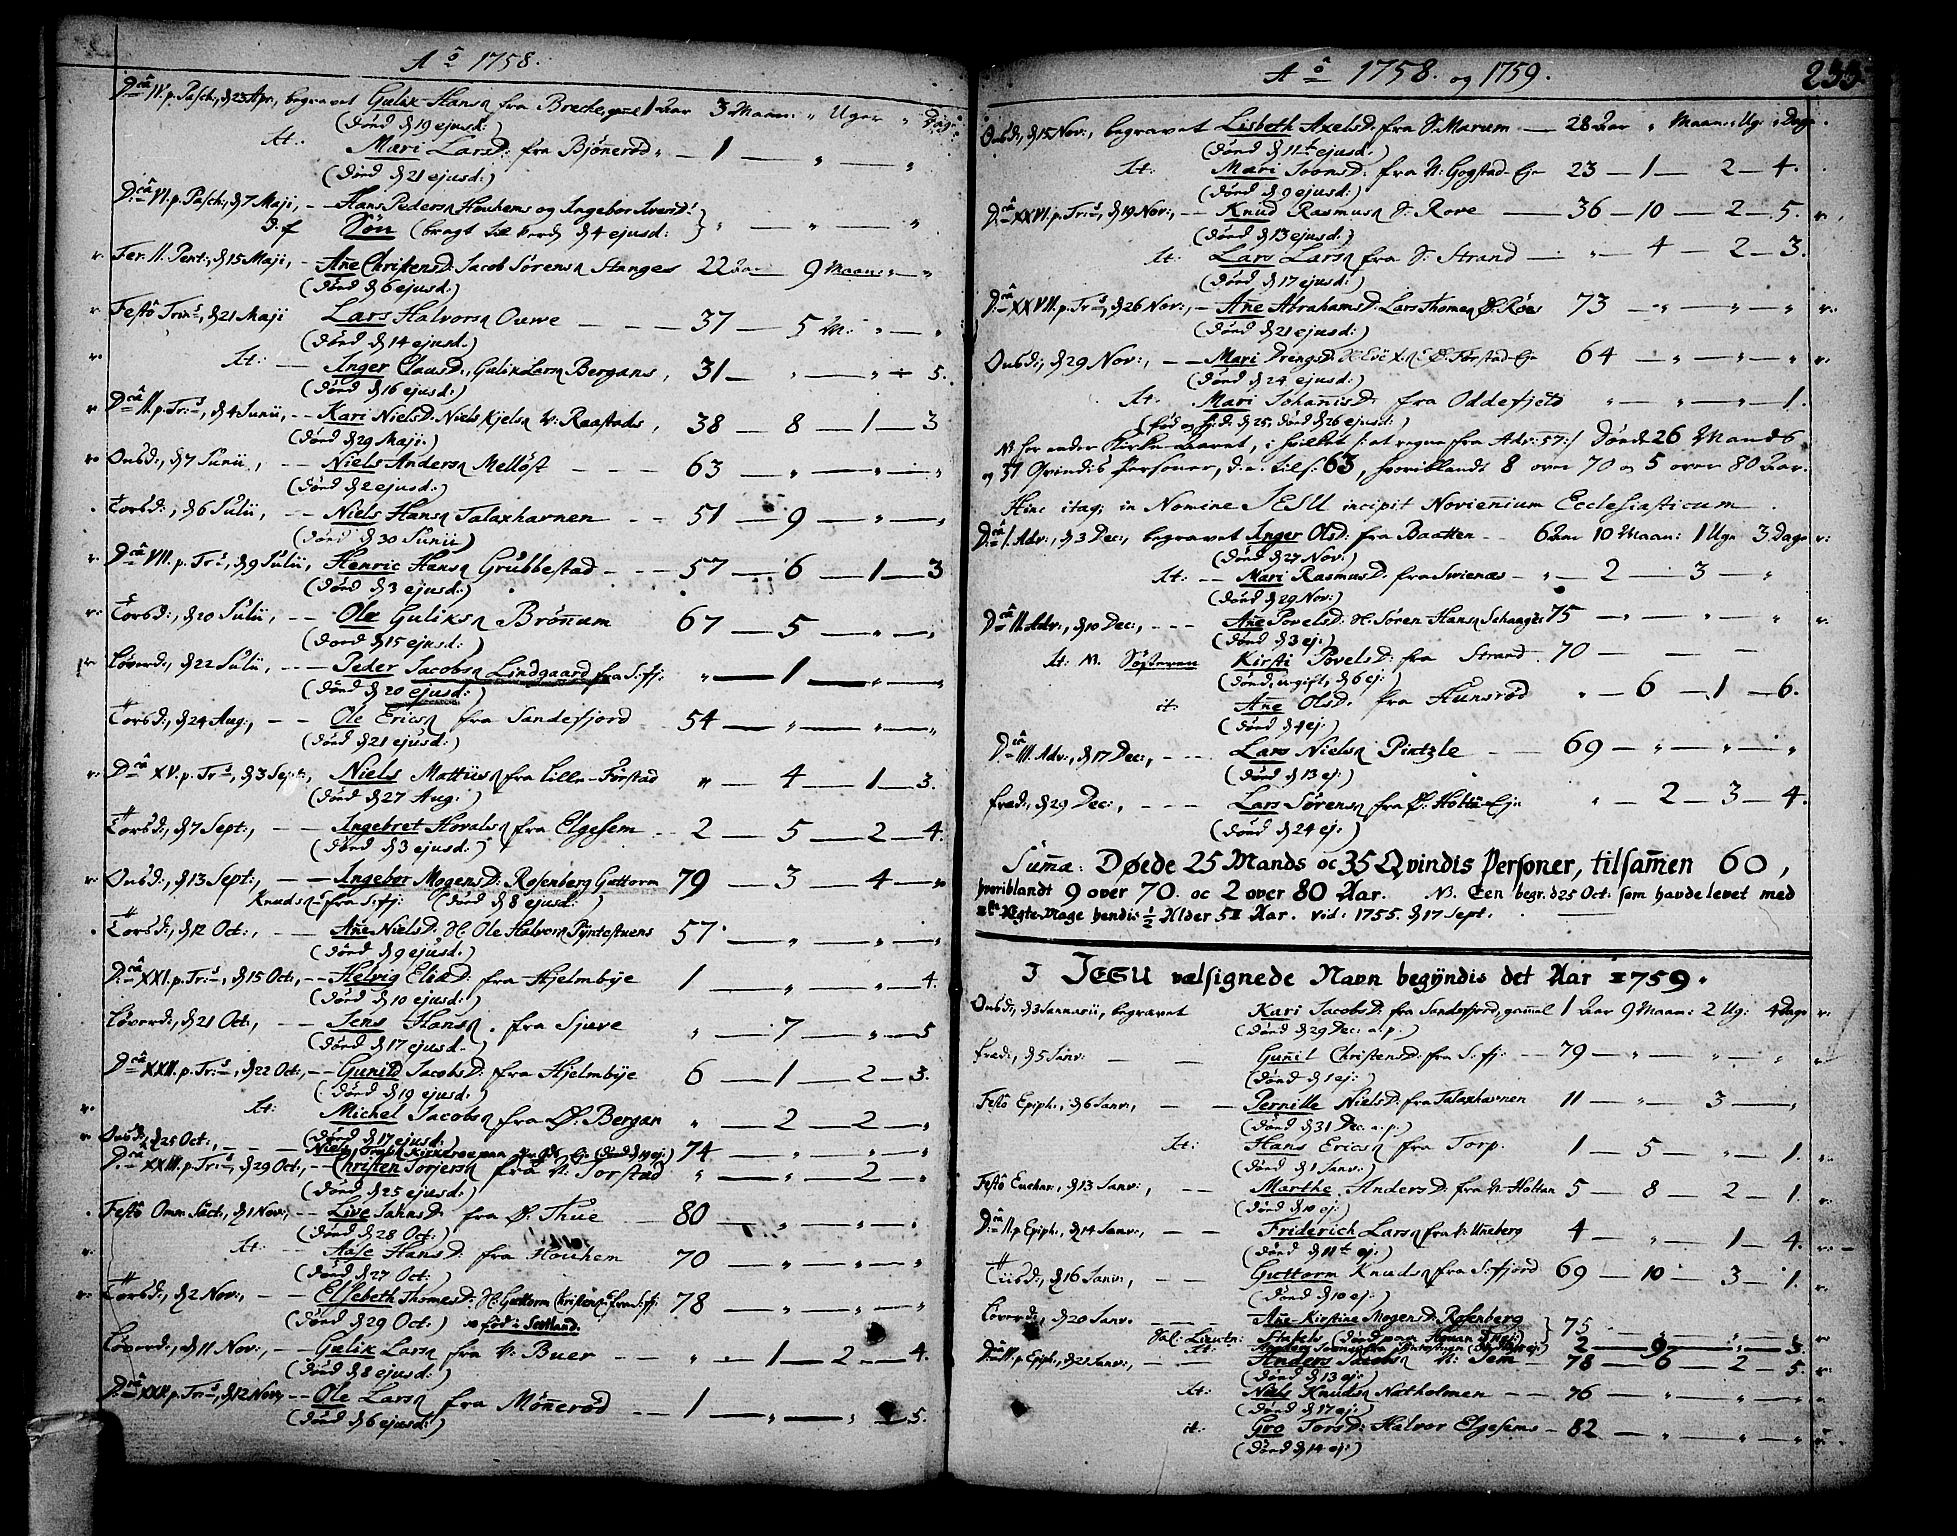 Aº 1758.
D.câ IV. p. Pasch., d. 23 Apr., begravet Gulik Hans. fra Breche, gml 1 Aar 3 Maan: „ Uger „ Dage
(død d. 19 ejusd:)
It: Mari Lars D: fra Bjønerød „ — 1 — „ — „
(død d. 21 ejusd:)
D.câ VI. p. Pasch., d. 7 Maji, — Hans Peders. Houhems og Ingebor Ivers D:
D. f. Søn (bragt til Jorden d. 4 ejusd:) „ — „ — „
Fer. II. Pent:, d. 15 Maji, — Añe Christens D: Jacob Sørens. Stanges 22 Aar — 9 Maan: „ — „
(død d. 6 ejusd:)
Festô Trin:, d. 21 Maji Lars Halvors. Ouwe — 37 — 5 M: „ — „
(død d. 14 ejusd.)
It: — Inger Claus D:, Gulik Lars. Bergans, 31 — „ — „ — 5.
(død d. 16 ejusd.)
D.câ II. p. Tr:, d. 4 Junii, — Kari Niels D: Niels Kjels. V: Raastads, 38 — 8 — 1 — 3
(død d. 29 Maji.)
Onsd:, d. 7 Junii, — Niels Anders. Melløst — 63 — „ — „ — „
(død d. 2 ejusd:)
Torsd:, d. 6 Julii, — Niels Hans. Talaxhavnen — 51 — 9 — „ — „
(død d. 30 Junii)
D.câ VII. p. Tr:, d. 9 Julii, Henric Hans. Grubbestad — 57 — 6 — 1 — 3
(død d. 3 ejusd.)
Torsd:, d. 20 Julii, — Ole Guliks. Brøñum 67 — 5 — „ — „
(død d. 15 ejusd:)
Løverd:, d. 22 Julii, — Peder Jacobs. Lindgaard fra S:fj: „ — 1 — „ — „
(død d. 20 ejusd:)
Torsd:, d. 24 Aug:, — Ole Erics. fra Sandefjord 54 — „ — „ — „
(død d. 21 ejusd:)
D.câ XV. p. Tr:, d. 3 Sept:, Niels Mattiis. fra Lille-Førstad „ — 4 — 1 — 3.
(død d. 27 Aug:)
Torsd:, d. 7 Sept:, — Ingebret Hovals. fra Elgesem 2 — 5 — 2 — 4.
(død d. 3 ejusd:)
Onsd:, d. 13 Sept:, — Ingebor Mogens D: Rosenberg Guttorm 79 — 3 — 4 — „
Knuds. fra S:fj: (død d. 8 ejusd:)
Torsd:, d. 12 Oct:, — Añe Niels D: H. Ole Halvors. Pyntestuens 57 — „ — „ — „
(død d. 9 ejusd.)
D.câ XXI. p. Tr:, d. 15 Oct:, — Helvig Elis D: fra Hjelmbye 1 — „ — „ — 4.
(død d. 10 ejusd.)
Løverd:, d. 21 Oct:, — Jens Hans. fra Sjuve „ — 7 — „ — 5
(død d. 17 ejusd.)
D.câ XXII. p. Tr:, d. 22 Oct:, — Gunild Jacobs D: fra Hjelmbye 6 — 1 — 2 — 3.
(død d. 19 ejusd.)
It: Michel Jacobs. fra Ø: Bergan „ — 2 — 2 — „
(død d. 17 ejusd:)
Onsd:, d. 25 Oct:, — Niels 74 — „ — „ — „
D.câ XXIII. p. Tr:, d. 29 Oct:, — Christen Torjers. fra N: Torstad „ — „ — 2 — „
(død d. 25 ejusd.)
Festô Omn. Sãct:, d. 1 Nov:, Live Jahns D: fra Ø: Thue — 80 — „ — „ — „
(død d. 28 Oct:)
It: Aase Hans D: fra Houhem 70 — „ — „ — „
(død d. 27 Oct:)
Torsd:, d. 2 Nov:, — Elsebeth Thomes D: H: Guttorm Christens. fra S:fj: 78 — „ — „ — „
(død d. 29 Oct:) fød i Scotland.
Løverd:, d. 11 Nov:, — Gulik Lars. fra V: Buer „ — 1 — 2 — 4.
(død d. 8 ejusd:)
D.câ XXV. p. Tr:, d. 12 Nov:, — Ole Lars. fra Møñerød — 1 — „ — „ — 5.
(død d. 6 ejusd:)
Aº 1758. og 1759.
233.
Onsd:, d. 15 Nov:, begravet Lisbeth Axels D: fra S: Marum — 28 Aar „ Maan: „ Ug: „ Dage
(død d. 11te ejusd:)
It: Mari Joons D: fra N: Gogstad-Eje 23 — 1 — 2 — 4.
(død d. 9 ejusd:)
D.câ XXVI. p. Tr:, d. 19 Nov:, — Knud Rasmus. S: Rove — 36 — 10 — 2 — 5.
(død d. 13 ejusd:)
It: Lars Lars. fra S: Strand — „ — 4 — 2 — 3.
(død d. 17 ejusd:)
D.câ XXVII. p. Tr:, d. 26 Nov:, — Añe Abrahams D: Lars Thomes. Ø: Røes 73 — „ — „ — „
(død d. 21 ejusd:)
Onsd:, d. 29 Nov:, — Mari Drengs D: Ø: Forstad-Eje 64 — „ — „ — „
(død d. 24 ejusd:)
It: Mari Johañis D: fra Oddefjeld „ — „ — „ — 1.
(fød og hj: d. 25, død d. 26 ejusd:)
N. her ender Kirke-aaret, i hvilket /: at regne fra Adv: 57:/ døde 26 Mands
og 37 Qvindis Personer, d. e. tils: 63, hvoriblandt 8 over 70 og 5 over 80 Aar.
Hinc itaq; in Nomine JESU incipit Novieñium Ecclesiasticum.
D.câ I. Adv:, d. 3 Dec:, begravet Inger Ols D: fra Baatten — 6 Aar 10 Maan: 1 Uge 3 Dage
(død d. 27 Nov:)
It: — Mari Rasmus D: fra Svienæs — „ — 2 — 3 — „
(død d. 29 Nov:)
D.câ II. Adv:, d. 10 Dec:, — Añe Povels D: H: Søren Hans. Schaages 75 — „ — „ — „
(død d. 3 ej:)
It: N. Søsteren Kirsti Povels D: fra Strand. 70 — — —
(død, ugift, d. 6 ej:)
it: Añe Ols D: fra Hunsrød „ — 6 — 1 — 6.
(død d. 4 ej:)
D.câ III. Adv:, d. 17 Dec:, — Lars Niels. Pintzle — 69 — „ — „ — „
(død d. 13 ej:)
Fred:, d. 29 Dec:, — Lars Sørens. fra Ø: Holtan-Eje „ — 2 — 3 — 4.
(død d. 24 ej:)
Suma: Døede 25 Mands oc 35 Qvindis Personer, tilsam̃en 60,
hvoriblandt 9 over 70 oc 2 over 80 Aar. N. Een begr. d. 25 Oct: som havde levet med
Ægte-Mage hendis ½ Alder 51 Aar. vid: 1755. d. 17 Sept.
I JESU velsignede Navn begyndis det Aar 1759.
Onsd:, d. 3 Januarii, begravet Kari Jacobs D: fra Sandefjord, gam̃el 1 Aar 9 Maan: 2 Ug: 4 Dage
(død d. 29 Dec: a. p.)
Fred:, d. 5 Janv: — Gunil Christens D: fra S: fj: — 79 — „ — „ — „
(død d. 1 ej:)
Festô Epiph:, d. 6 Janv:, — Pernille Niels D: fra Talaxhavnen 11 — „ — 3 — „
(død d. 31 Dec. a. p:)
It: Hans Erics. fra Torp. 1 — 5 — „ — 1.
(død d. 1 Janv:)
Festô Euchar:, d. 13 Janv:, — Marthe Anders D: fra N: Holtan 5 — 8 — 2 — 1.
(død d. 10 ej:)
D.câ II. p. Epiph:, d. 14 Janv:, — Friderich Lars. fra V: Uñeberg 4 — „ — 1 — 4.
(død d. 11te ej:)
Tiisd:, d. 16 Janv:, — Guttorm Knuds. fra S: fjord 69 — 10 — 3 — 1.
(død d. 10 ej:)
Løverd:, d. 20 Janv: — Añe Kirstine Mogens D: Rosenberg
Sal: Lieutn: Stabels 75 — „ — „ — „
It: 2 — 9 — „ — 3.
D.câ III. p. Epiph:, d. 21 Janv:, — Anders Jacobs. N: Sem 78 — 6 — 2 — 5.
(død d. 13 ej:)
It: Niels Knuds. Natholmen — 76 — „ — „ — „
(død d. 17 ej:)
it: Gro Tors D: Halvor Elgesems — 82 — „ — „ — „
(død d. 14 ej:)